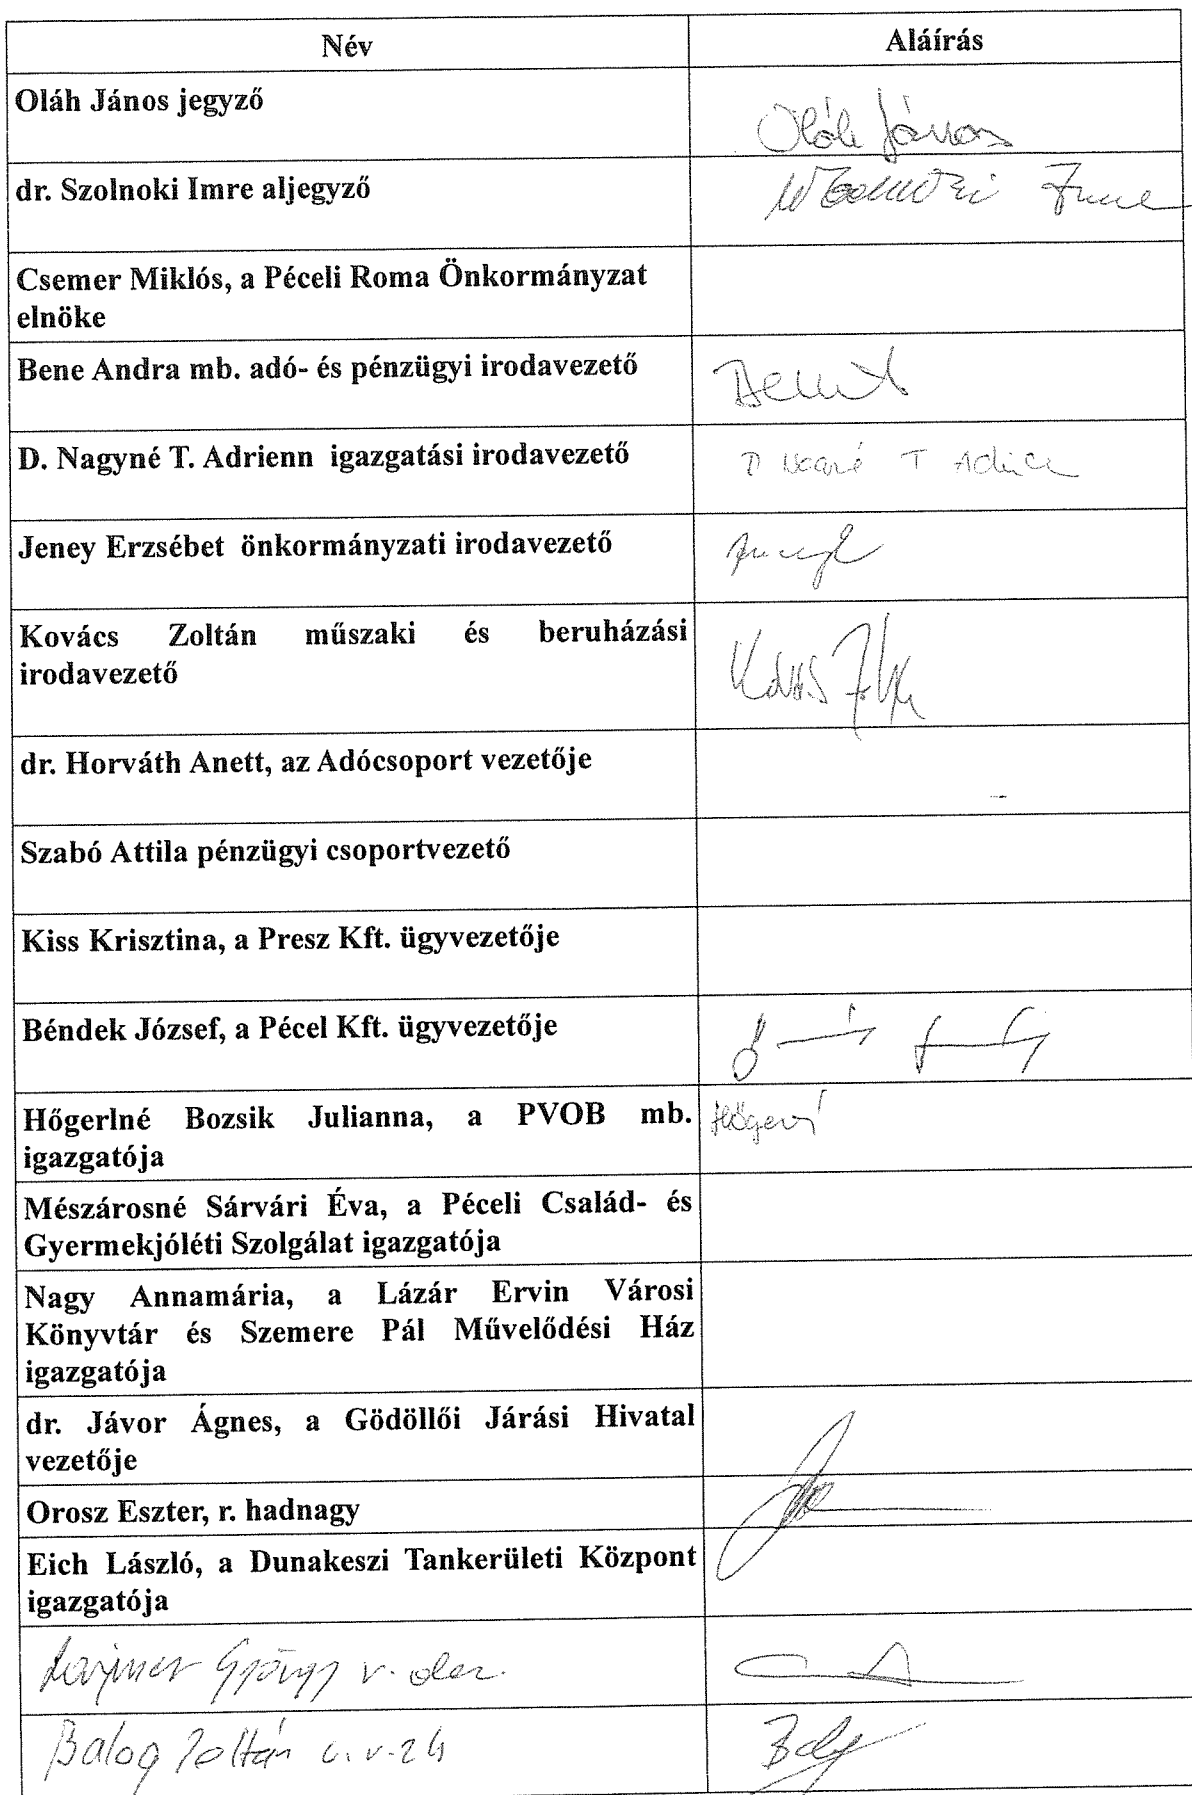 Név Aláírás
Oláh János jegyző
Oláh János
dr. Szolnoki Imre aljegyző
Szolnoki Imre
Csemer Miklós, a Péceli Roma Önkormányzat
elnöke
Bene Andra mb. adó- és pénzügyi irodavezető
Bene A
D. Nagyné T. Adrienn igazgatási irodavezető
D Nagyné T Adrienn
Jeney Erzsébet önkormányzati irodavezető
Kovács Zoltán műszaki és beruházási
irodavezető
Kovács
dr. Horváth Anett, az Adócsoport vezetője
Szabó Attila pénzügyi csoportvezető
Kiss Krisztina, a Presz Kft. ügyvezetője
Béndek József, a Pécel Kft. ügyvezetője
Hőgerlné Bozsik Julianna, a PVOB mb.
igazgatója
Mészárosné Sárvári Éva, a Péceli Család- és
Gyermekjóléti Szolgálat igazgatója
Nagy Annamária, a Lázár Ervin Városi
Könyvtár és Szemere Pál Művelődési Ház
igazgatója
dr. Jávor Ágnes, a Gödöllői Járási Hivatal
vezetője
Orosz Eszter, r. hadnagy
Eich László, a Dunakeszi Tankerületi Központ
igazgatója
György
Balog Zoltán